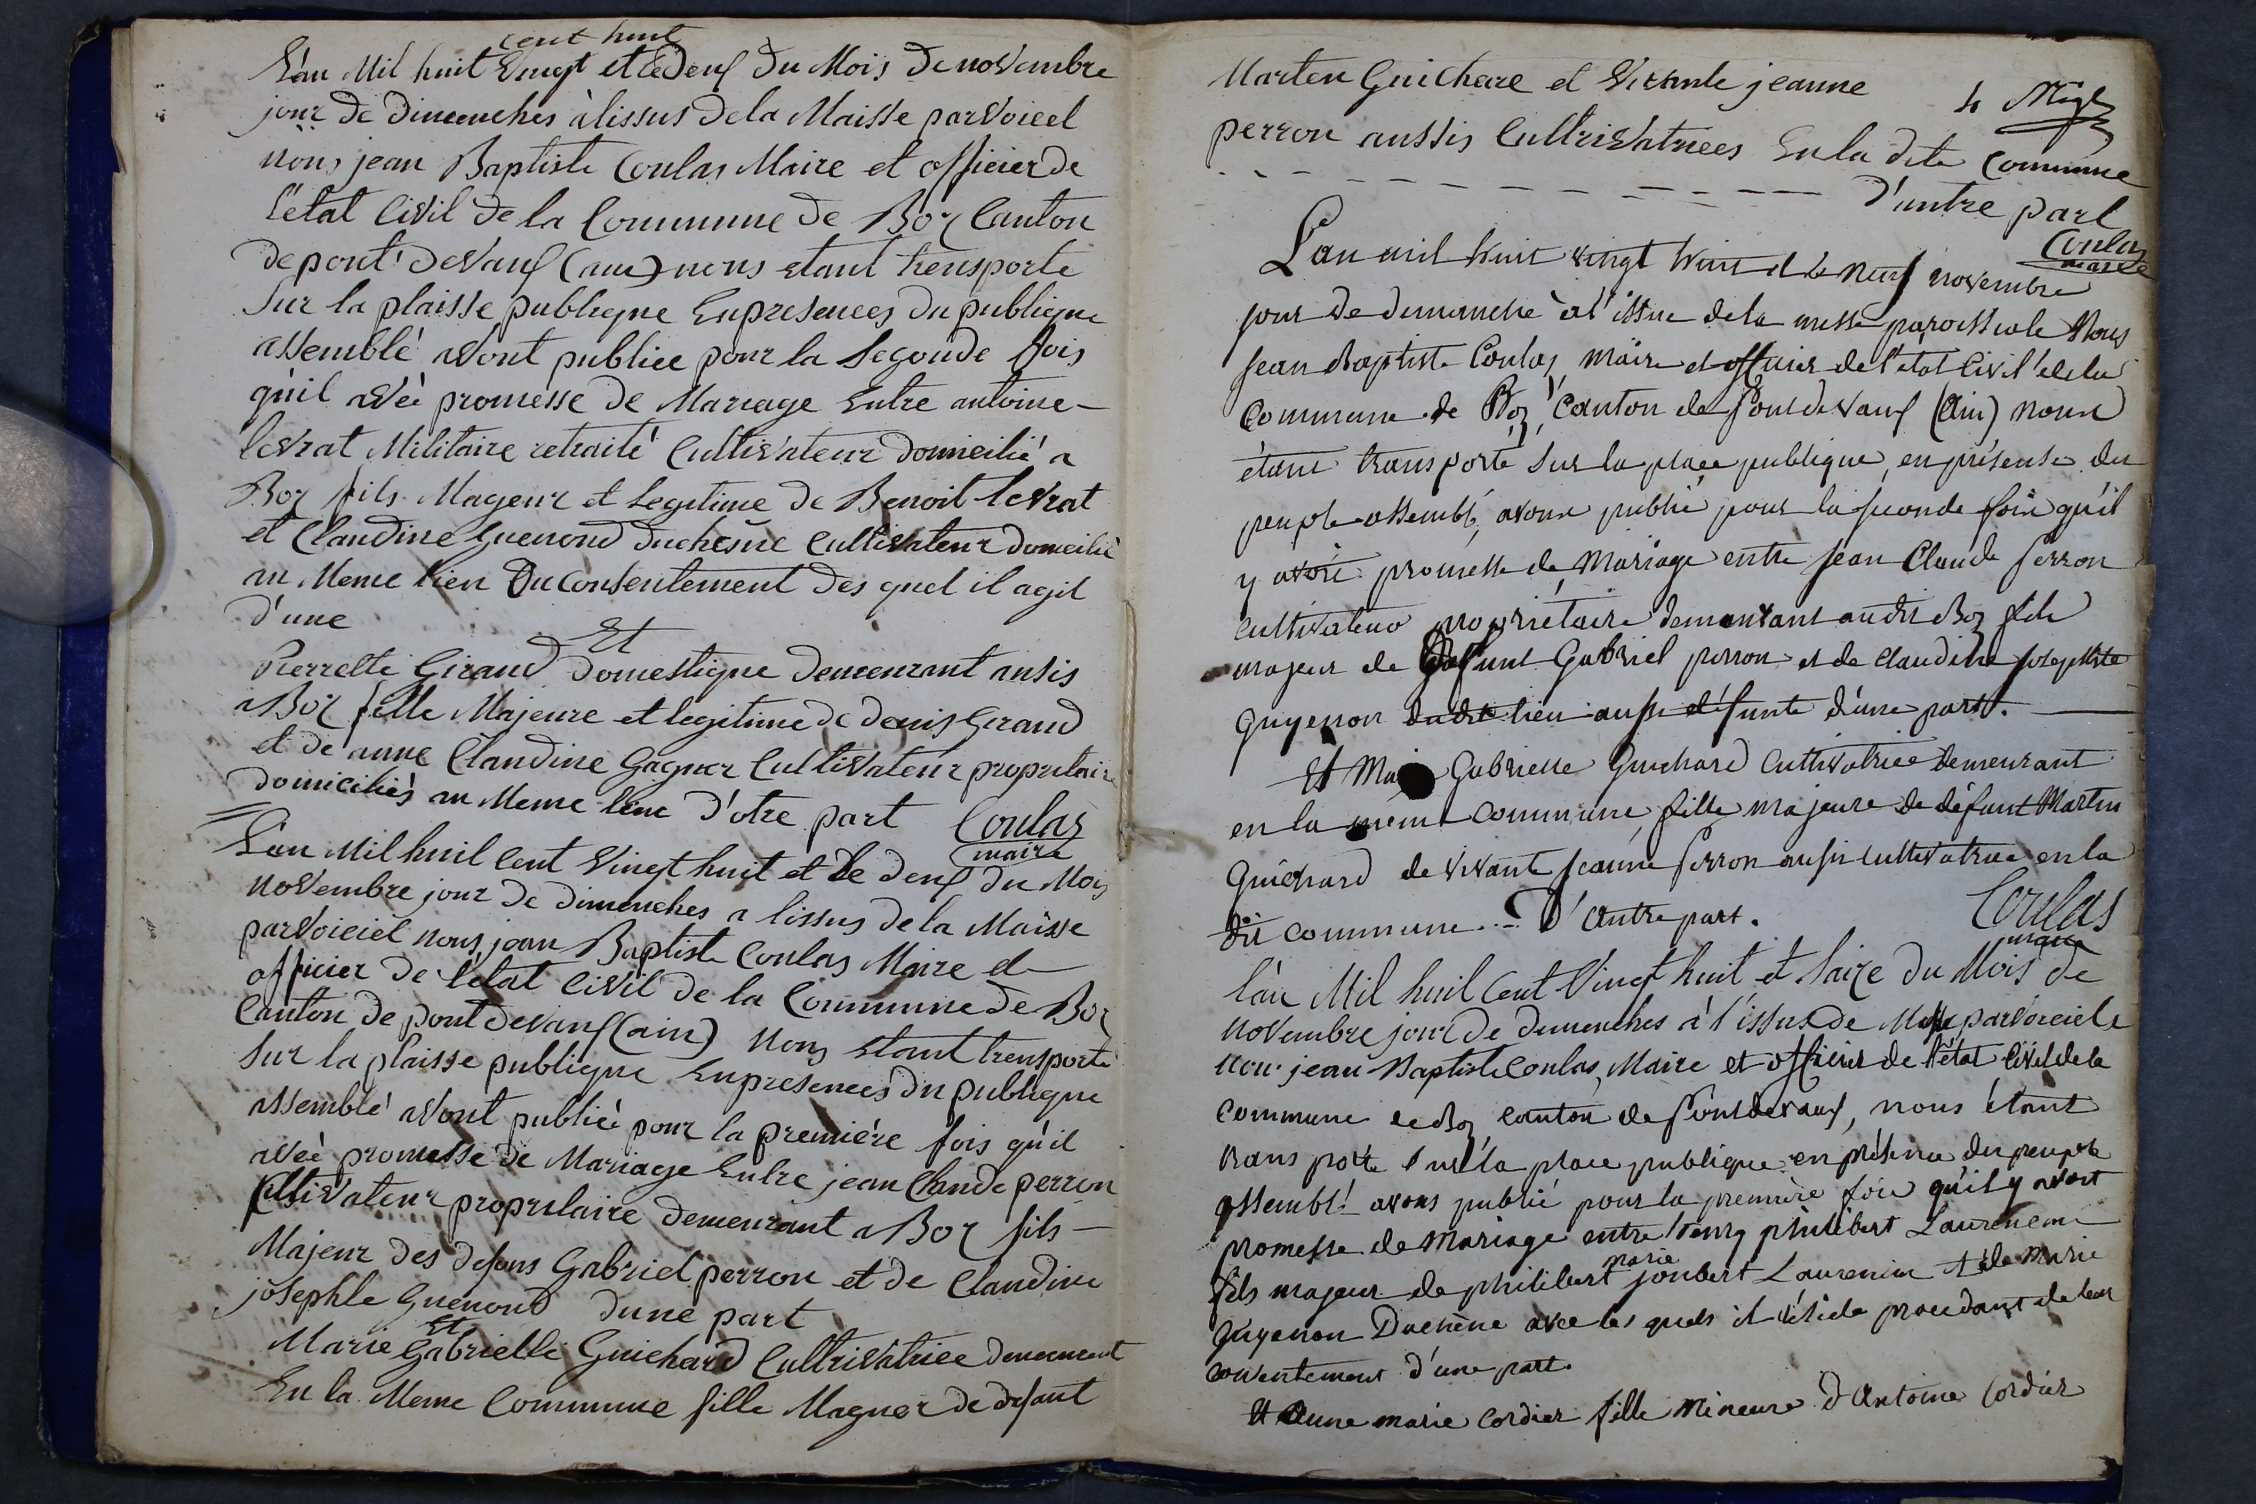 cent huit
L'an Mil huit Vingt et le Deux du Mois de novembre
jour de dimenches à lissus de la Maisse parvoieel
nous jean Baptiste Coulas Maire et officier de
l'etat Civil de la Commune de Boz Canton
de pont devaux (ain) nous etant trensporte
Sur la plaisse publieque En presences du publieque
assemblé avont publiee pour la Segonde fois
qu'il avée promesse de Mariage Entre antoine
levrat Militaire retraité Cultivateur domicilié a
Boz fils Mageur et Legitime de Benoit levrat
et Claudine Guenond duchesne Cultivateur domeilie
au Meme lieu du Consentement des quel il agit
d'une
Et
Pierrette Giraud domestique demeurant ausis
a Boz fille Majeure et legitime de denis Giraud
et de anne Claudine Gagner Cultivateur propritaire
domiciliés au Meme lieu d'otre part Coulas
maire
L'an Mil huil Cent Vingt huit et le deux du Mois
Novembre jour de dimenches a lissus de la Maisse
parvoiciel nous jean Baptiste Coulas Maire et
officier de l'etat Civil de la Commune de Boz
Canton de pont devaux (ain) Nous etant trensporté
Sur la plaisse publieque En presences du publieque
assemblé avont publiée pour la première fois qu'il
avée promesse de Mariage Entre jean Claude perron
Cultivateur propritaire demeurant a Boz fils
Majeur des defons Gabriel perron et de Claudine
josephle Guenond dune part
Et
Marie Gabrielle Guichard Cultrivatrice demeurant
En la Meme Commune fille Magner de defant
4
Marten Guichare et Vivante jeanne
perron aussis Cultrivatrices En la dite Commune
d'untre part
Coulas
maire
L'an mil huit vingt huit et le neuf novembre
jour de dimanche à l'issue de la messe paroissiale Nous
Jean Baptiste Coulas, maire et officier de l'état Civil de la
Commune de Boz, Canton de Pont de Vaux (Ain) nous
étant transporté sur la place publique, en présense du
peuple assemblé, avons publié pour la seconde fois qu'il
y avoit promesse de Mariage entre Jean Claude Perron
cultivateur propriétaire demeurant audit Boz fils
majeur de défunt Gabriel perron et de Claudine josephte
Guyenon dudit lieu aussi défunte d'une part.
Et Gabrielle Guichard Cultivatrice demeurant
en la meme commune, fille majeure de défunt Martin
Guichard de vivante Jeanne Perron aussi cultivatrice en la
dit commune d'autre part.
Coulas
maire
l'an Mil huil Cent Vingt huit et Saize du Mois de
Novembre jour de dimenches à l'issus de Messe parvoiciele
nou jean Baptiste Coulas, Maire et officier de l'état civil de la
commune de Boz canton de Pontdevaux, nous étant
trans porté sur la place publique en présence du peuple
assemblé avons publié pour la première fois qu'il y avoit
promesse de Mariage entre philibert Laurencin
marie
fils majeur de philibert joubert Laurencin et de Marie
Guyenon Duchêne avec les quels il réside procedant de leur
consentement d'une part.
Et Anne marie Cordier fille Mineure d'Antoine Cordier